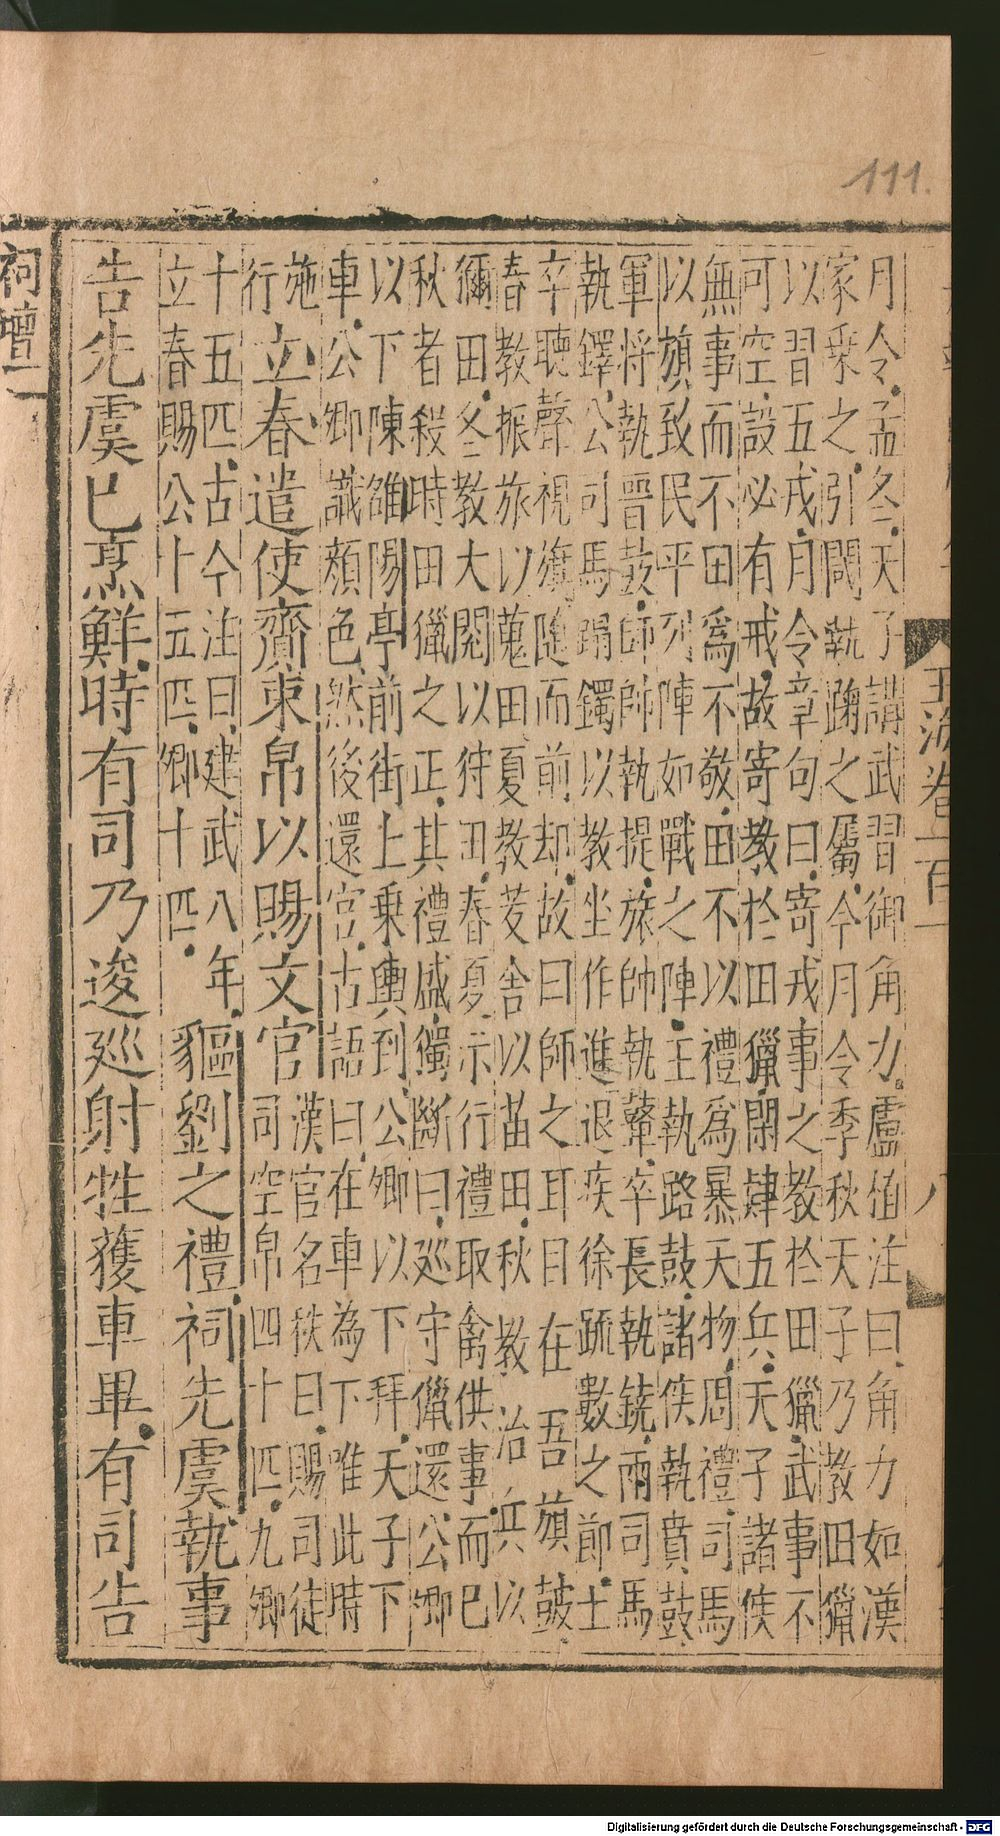 111.
玉海卷一百一
八
月令孟冬天子講武習御角力盧植注曰角力如漢
家乘之引閾執踘之屬今月令季秋天子乃教田獵
以習五戎月令章句曰寄戎事之教於田獵武事不
可空設必有戒故寄教於田獵閑肄五兵天子諸侯
無事而不田爲不敬田不以禮爲暴天物周禮司馬
以旗致民平列陣如戰之陣王執路鼓諸侯執賁鼓
軍將執晉鼓師帥執提旅帥執鼙卒長執鐃兩司馬
執鐸公司馬鐲以教坐作進退疾徐疏數之節士
卒聽聲視旗隨而前却故曰師之耳目在吾旗鼓
春教振旅以蒐田夏教茇舍以苗田秋教治兵以
獮田冬教大閱以狩田春夏示行禮取禽供事而已
秋者殺時田獵之正其禮盛獨斷曰巡守獵還公卿
以下陳雒陽亭前街上乗輿到公卿以下拜天子下
車公卿識顔色然後還宮古語曰在車為下唯此時
施
行
立春遣使齎束帛以賜文官
漢官名秩曰賜司徒
司空帛四十匹九卿
十五匹古今注曰建武八年
立春賜公十五匹卿十匹
貙劉之禮祠先虞執事
告先虞已烹鮮時有司乃逡巡射牲獲車畢有司告
祠壇二
Digitalisierung gefördert durch die Deutsche Forschungsgemeinschaft - DFG